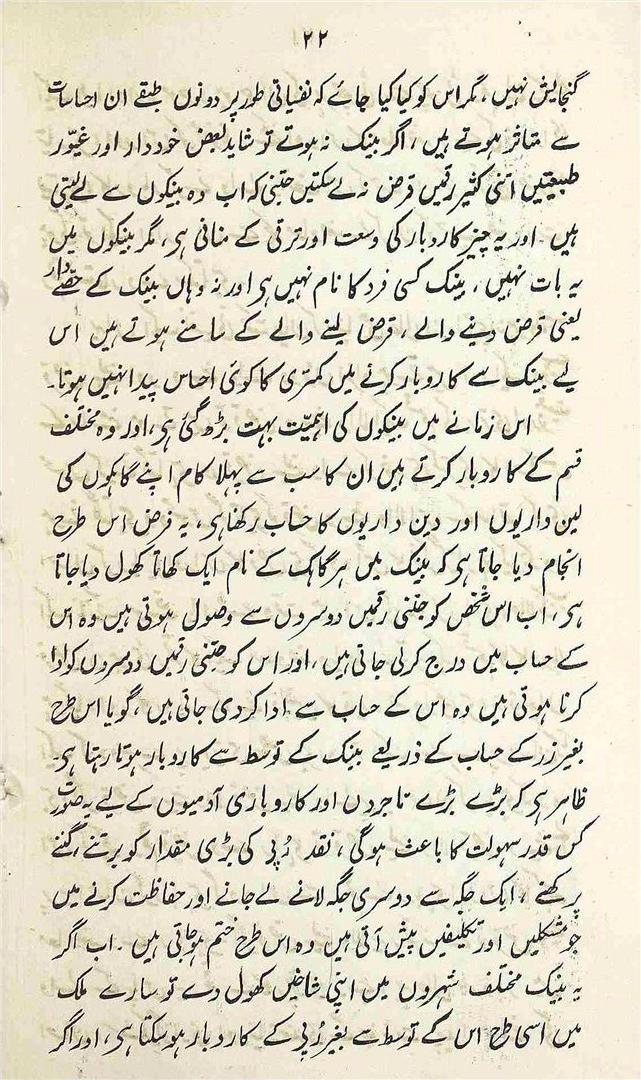 ۲۲
گنجایش نہیں، مگر اس کو کیا کیا جائے کہ نفسیاتی طور پر دونوں طبقے ان احساسات
سے متاثر ہوتے ہیں، اگر بینک نہ ہوتے تو شاید بعض خوددار اور غیّور
طبیعتیں اتنی کثیر رقمیں قرض نہ لے سکتیں جتنی کہ اب وہ بینکوں سے لے لیتی
ہیں۔ اور یہ چیز کاروبار کی وسعت اور ترقی کے منافی ہی، مگر بینکوں میں
یہ بات نہیں، بینک کسی فرد کا نام نہیں ہی اور نہ وہاں بینک کے حصّے دار
یعنی قرض دینے والے، قرض لینے والے کے سامنے ہوتے ہیں اس
لیے بینک سے کاروبار کرنے میں کمتری کا کوئی احساس پیدا نہیں ہوتا۔
اس زمانے میں بینکوں کی اہمیّت بہت بڑھ گئی ہی، اور وہ مختلف
قسم کے کاروبار کرتے ہیں ان کا سب سے پہلا کام اپنے گاہکوں کی
لین داریوں اور دین داریوں کا حساب رکھنا ہی، یہ فرض اس طرح
انجام دیا جاتا ہی کہ بینک میں ہر گاہک کے نام ایک کھاتا کھول دیا جاتا
ہی، اب اس شخص کو جتنی رقمیں دوسروں سے وصول ہوتی ہیں وہ اس
کے حساب میں درج کرلی جاتی ہیں، اور اس کو جتنی رقمیں دوسروں کو ادا
کرنا ہوتی ہیں وہ اس کے حساب سے ادا کردی جاتی ہیں، گویا اس طرح
بغیر زر کے حساب کے ذریعے بینک کے توسط سے کاروبار ہوتا رہتا ہی۔
ظاہر ہی کہ بڑے بڑے تاجروں اور کاروباری آدمیوں کے لیے یہ صورت
کس قدر سہولت کا باعث ہوگی، نقد رُپی کی بڑی مقدار کو برتنے، گننے
پرکھنے، ایک جگہ سے دوسری جگہ لانے لے جانے اور حفاظت کرنے میں
جو مشکلیں اور تکلیفیں پیش آتی ہیں وہ اس طرح ختم ہوجاتی ہیں۔ اب اگر
یہ بینک مختلف شہروں میں اپنی شاخیں کھول دے تو سارے ملک
میں اسی طرح اس کے توسط سے بغیر رُپی کے کاروبار ہوسکتا ہی، اور اگر